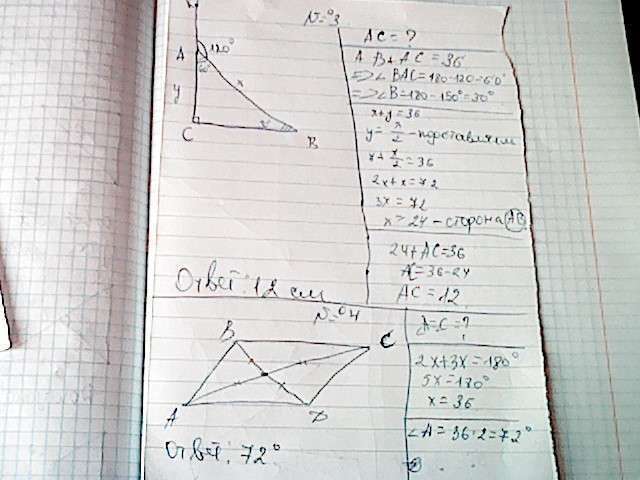 N=º3
A
120°
60°
y
x
30°
C
B
AC = ?
AB + AC = 36
=> ∠BAC = 180 - 120 = 60°
=> ∠B = 180 - 150° = 30°
x + y = 36
y = x/2 - подставляем
x + x/2 = 36
2x + x = 72
3x = 72
x = 24 - сторона AB
24 + AC = 36
AC = 36 - 24
AC = 12
Ответ: 12 см
N=º4
B
C
A
D
Ответ: 72°
A = C = ?
2x + 3x = 180°
5x = 180°
x = 36
∠A = 36 · 2 = 72°